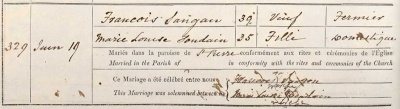 François Sangan 39 Veuf Fermier
329 Juin 19 Marie Louise Joudain 35 Fille Domestique
Mariés dans la paroisse de St Pierre conformément aux rites et cérémonies de l'Église
Married in the Parish of in conformity with the rites and ceremonies of the Church
Ce Mariage a été célébré entre nous
This Marriage was solemnized between us Marie Louise